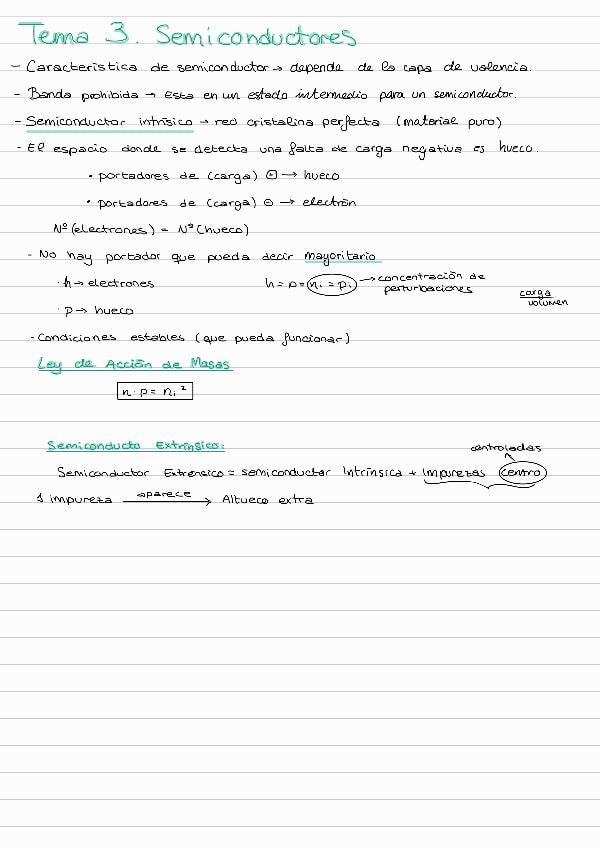 Tema 3. Semiconductores
- Caracteristica de semiconductor → depende de la capa de valencia.
- Banda prohibida → Esta en un estado intermedio para un semiconductor.
- Semiconductor intrísico → red cristalina perfecta (material puro)
- El espacio donde se detecta una falta de carga negativa es hueco.
• portadores de (carga) ⊕ → hueco
• portadores de (carga) ⊖ → electrón
Nº(electrones) = Nº(hueco)
- No hay portador que pueda decir mayoritario
· n → electrones
n = p = ni = pi → concentración de perturbaciones
carga
volumen
· p → hueco
- Condiciones estables (que pueda funcionar)
Ley de Acción de Masas
n · p = ni²
Semiconducto Extrínsico:
controladas
Semiconductor Extrensico = semiconductor Intrínsica + impurezas centro
1 impureza aparece → Altueco extra